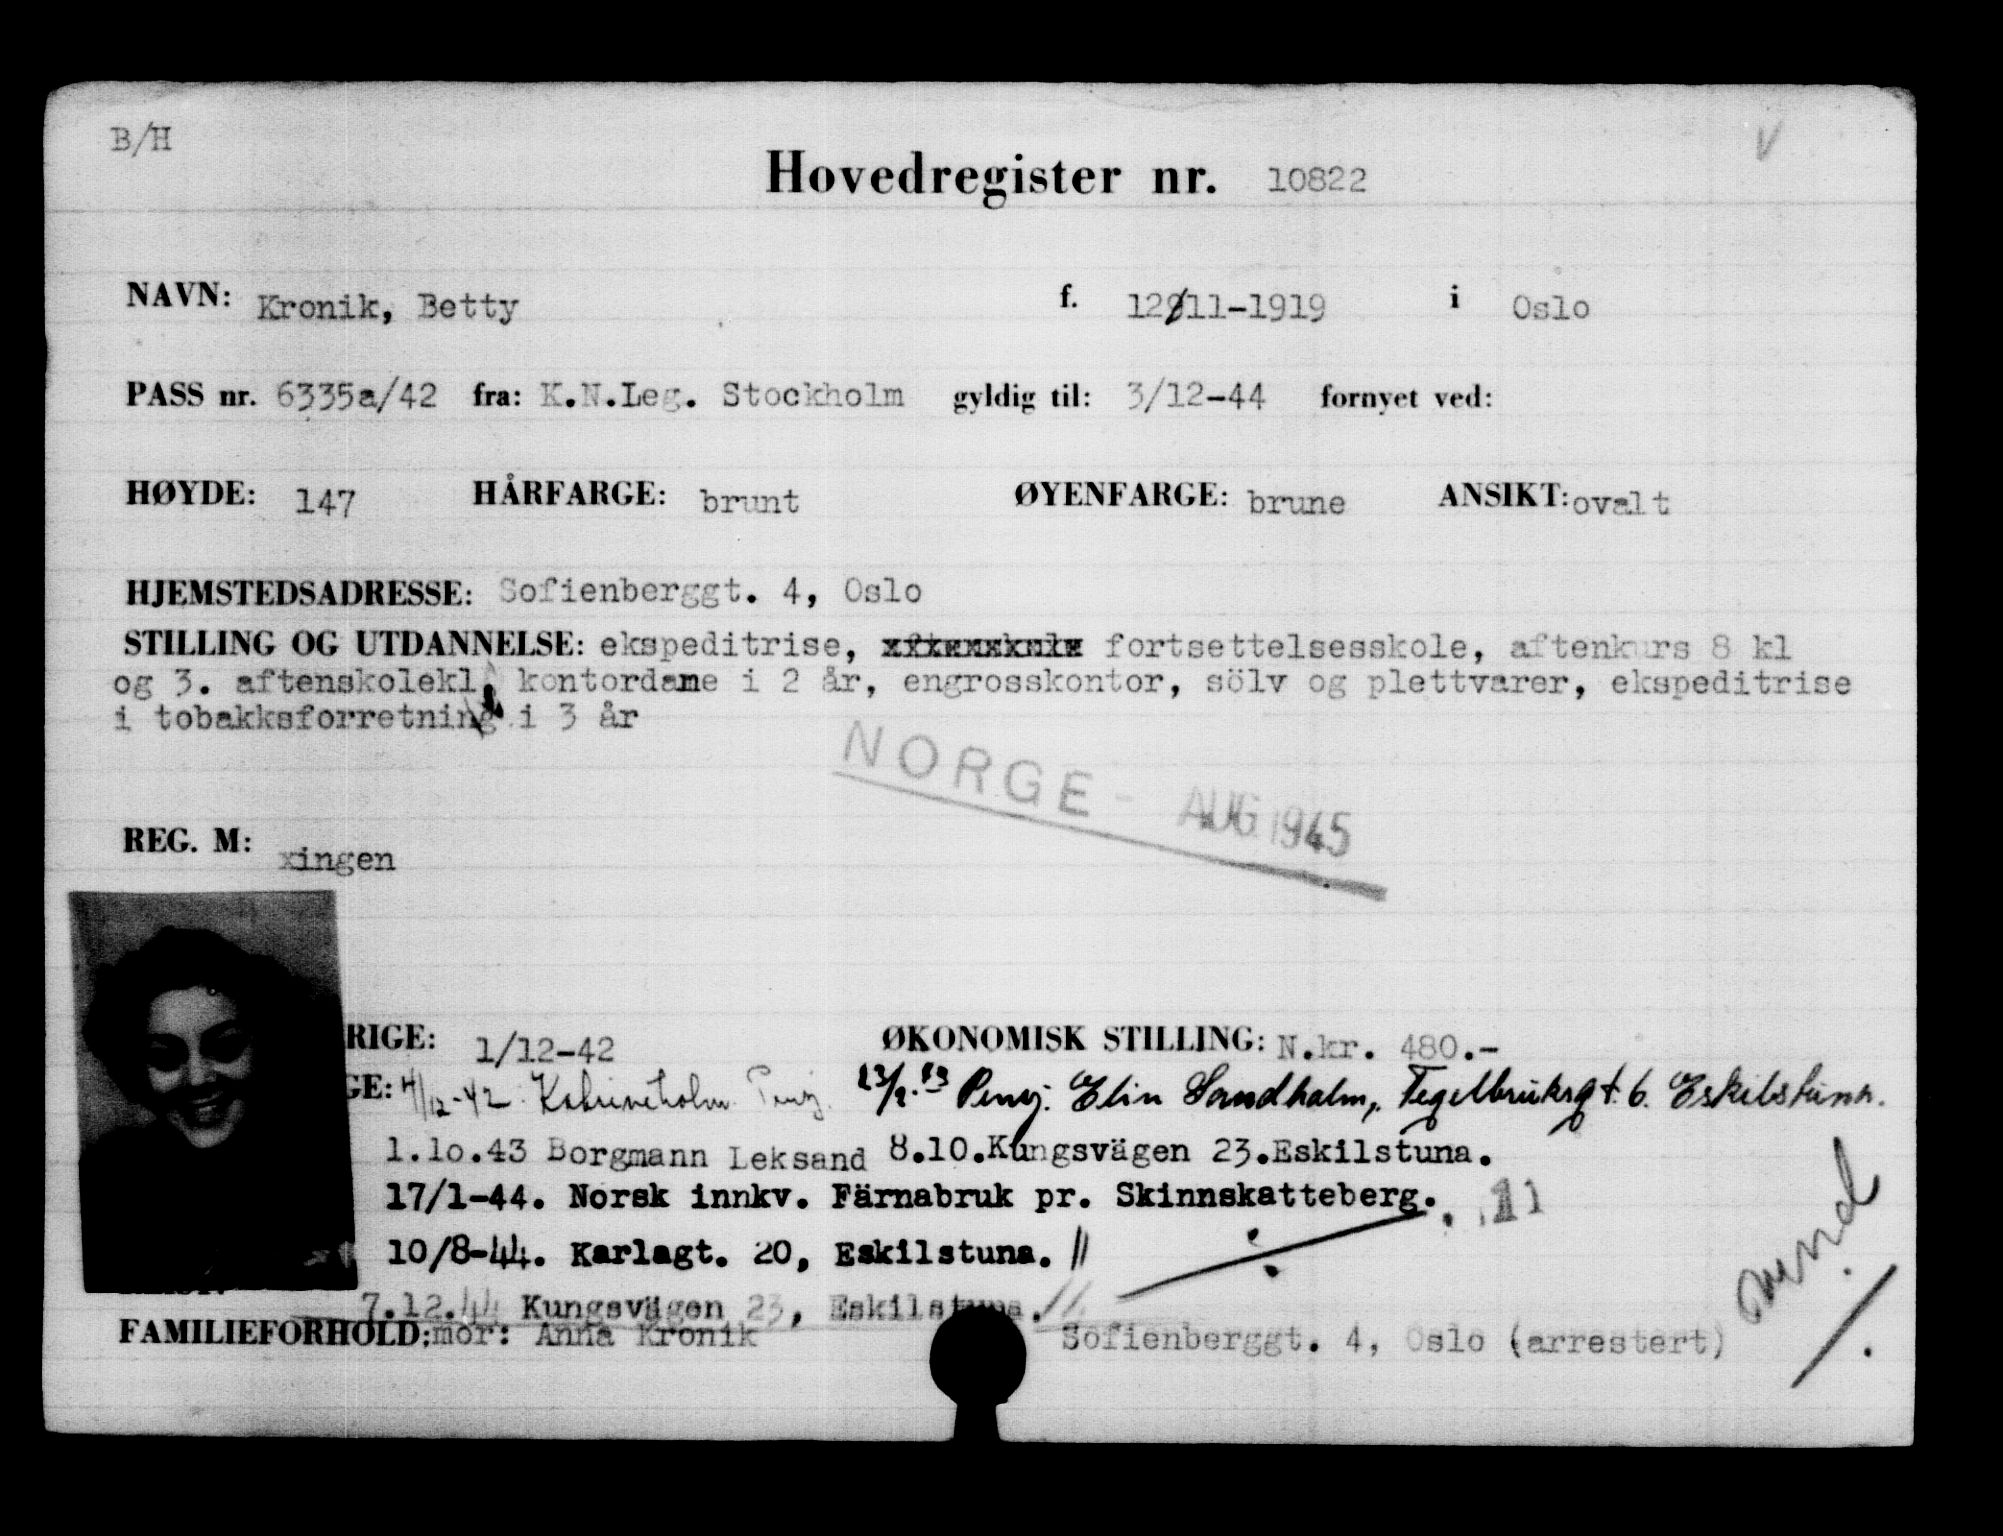 B/H
Hovedregister nr. 10822
NAVN: Kronik, Betty f. 12/11-1919 i Oslo
PASS nr. 6335a/42 fra: K.N.Leg. Stockholm gyldig til: 3/12-44 fornyet ved:
HØYDE: 147 HÅRFARGE: brunt ØYENFARGE: brune ANSIKT: ovalt
HJEMSTEDSADRESSE: Sofienberggt. 4, Oslo
STILLING OG UTDANNELSE: ekspeditrise, fortsettelsesskole, aftenkurs 8 kl
og 3. aftenskolekl, kontordame i 2 år, engrosskontor, sölv og plettvarer, ekspeditrise
i tobakksforretning i 3 år
NORGE - AUG 1945
REG. M: xingen
RIGE: 1/12-42 ØKONOMISK STILLING: N.kr. 480.-
GE: 4/12-42 Katrineholm Penj. Penj. Elin Sandhalm, Tegelbruksgt. 6. Eskilstuna.
1.10.43 Borgmann Leksand 8.10. Kungsvägen 23. Eskilstuna.
17/1-44. Norsk innkv. Färnabruk pr. Skinnskatteberg. 11
10/8-44. Karlagt. 20, Eskilstuna. //
7.12.44 Kungsvägen 23, Eskilstuna. //
FAMILIEFORHOLD: mor: Anna Kronik Sofienberggt. 4, Oslo (arrestert)